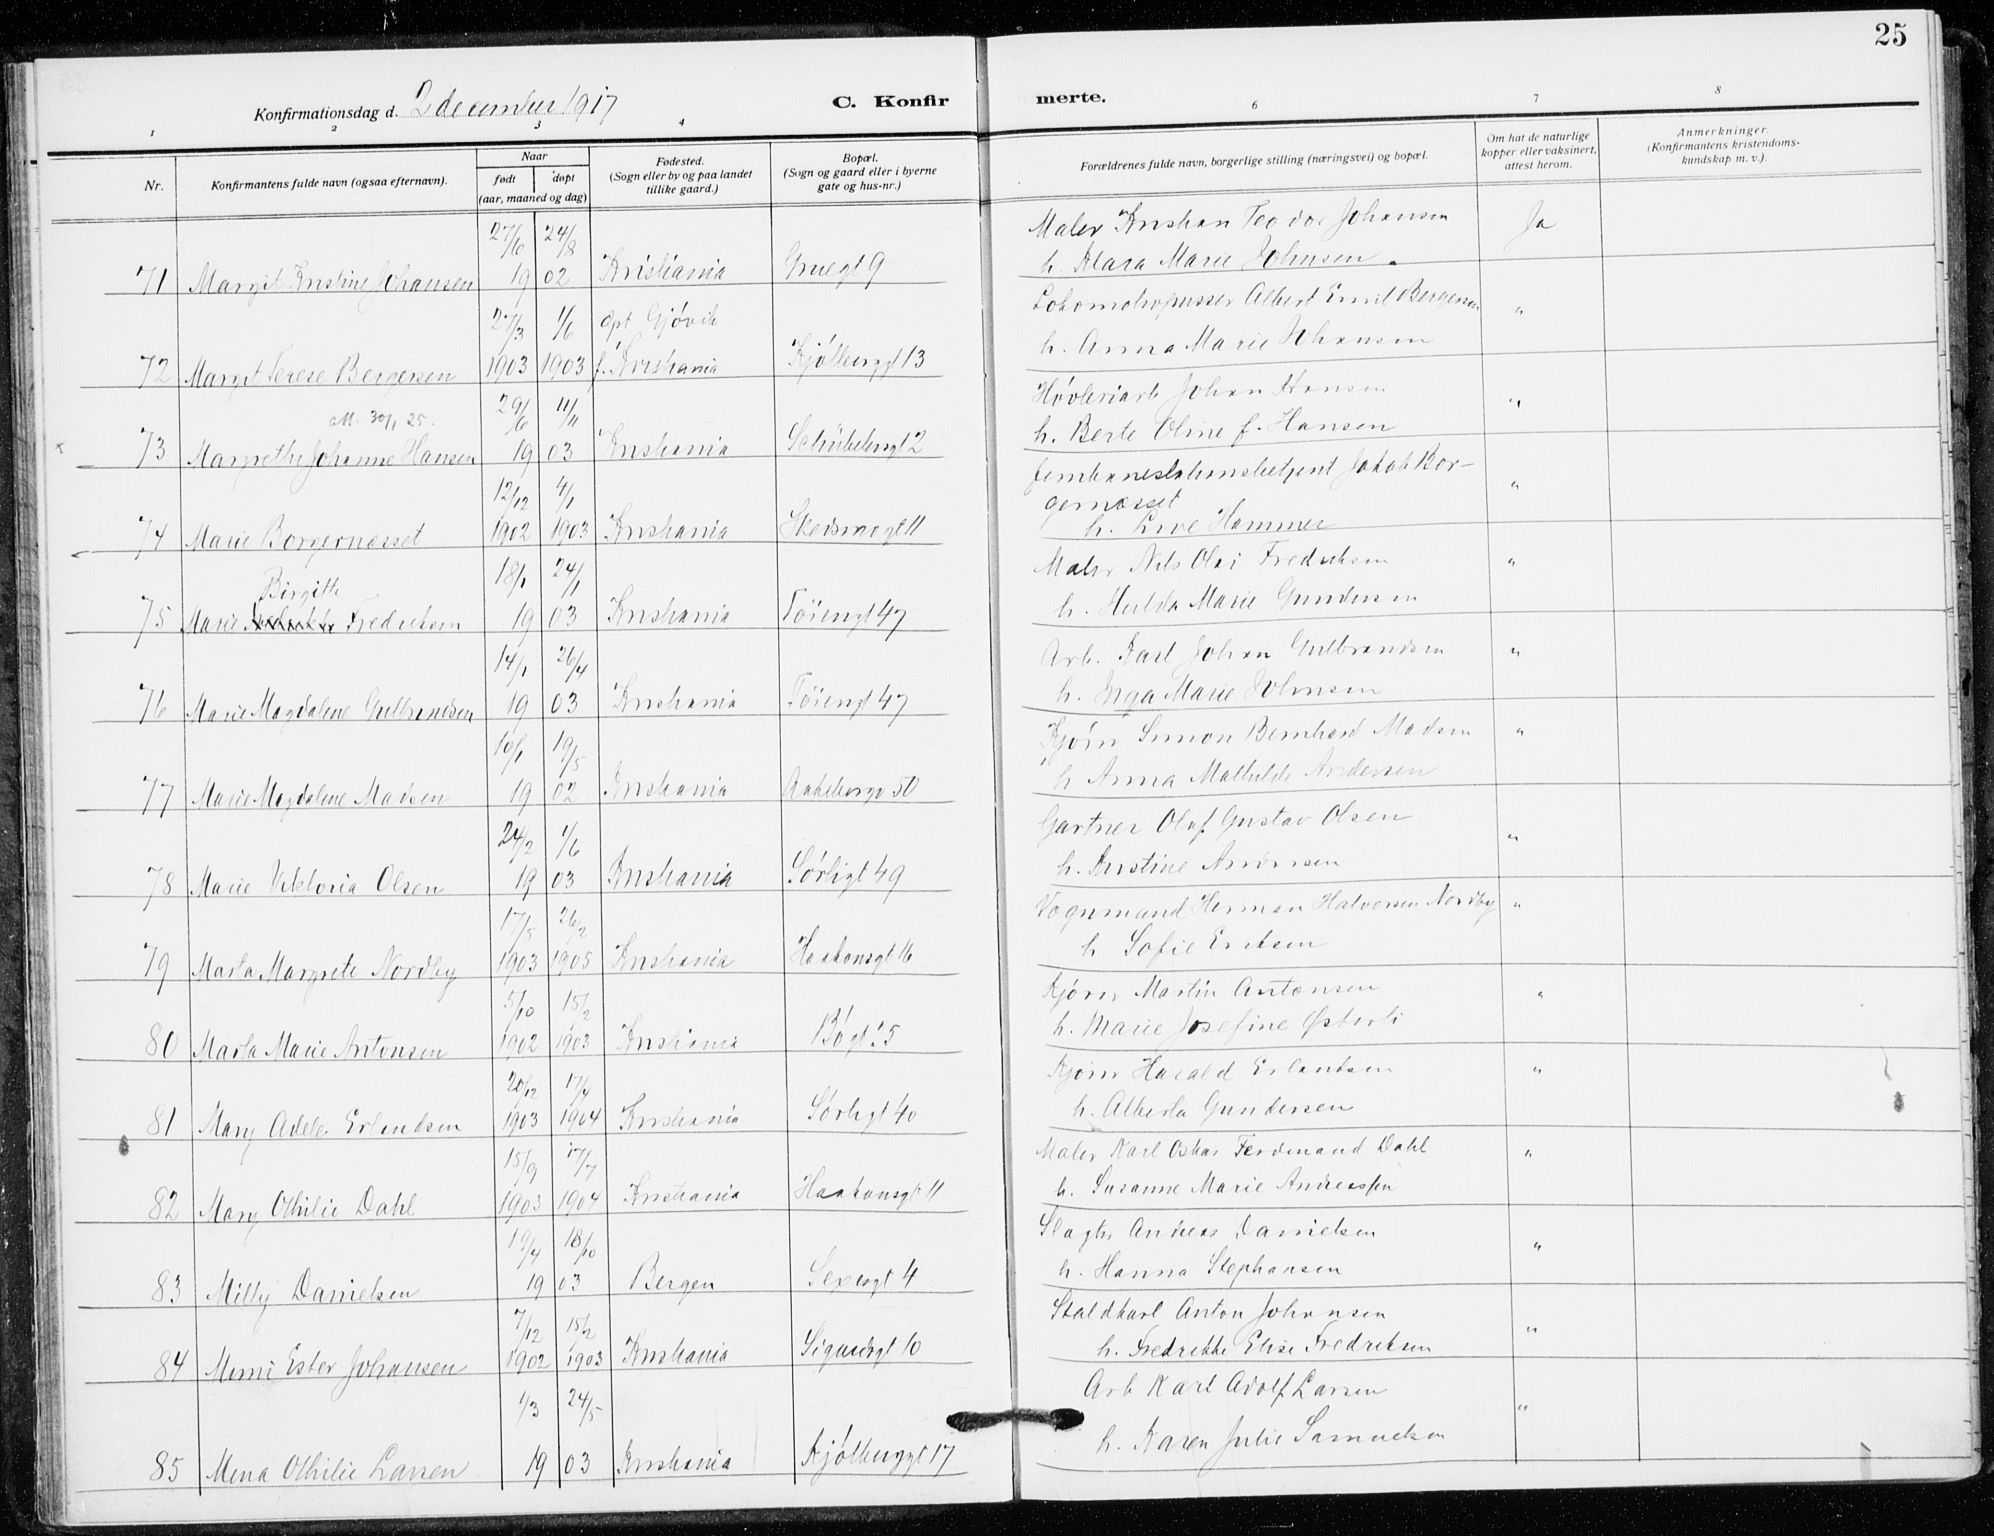 25
Konfirmationsdag d. 2 december 1917
C. Konfir merte.
1 2 3 4 6 7 8
Nr.
Konfirmantens fulde navn (ogsaa efternavn).
Naar
født døpt
(aar, maaned og dag)
Fødested.
(Sogn eller by og paa landet
tillike gaard.)
Bopæl.
(Sogn og gaard eller i byerne
gate og hus-nr.)
Forældrenes fulde navn, borgerlige stilling (næringsvei) og bopæl.
Om hat de naturlige
kopper eller vaksinert,
attest herom.
Anmerkninger.
(Konfirmantens kristendoms-
kundskap m. v.).
27/6 24/8 Maler Kristian Teodor Johansen Ja
71 Margit Kristine Johansen 19 02 Kristiania Gruegt 9 h. Klara Marie Johnsen.
27/3 1/6 dpt Gjøvik Lokomotivpusser Albert Emil Bergersen "
72 Margit Terese Bergersen 1903 1903 f. Kristiania Kjølberggt 13 h. Anna Marie Johansen
M. 30/1 25. 29/6 11/11 Høvleriarb Johan Hansen "
73 Margrethe Johanne Hansen 19 03 Kristiania Schübelersgt 2 h. Berte Oline f. Hansen
12/12 4/1 Jernbanestationsbetjent Jakob Bor-
gernæsset "
74 Marie Borgernæsset 1902 1903 Kristiania Skedsmogt 11 h. Live Hammer
Birgitte 18/1 24/1 Maler Nils Olai Fredriksen "
75 Marie Fredriksen 19 03 Kristiania Tøiengt 47 h. Hulda Marie Gundersen
14/1 26/4 Arb. Karl Johan Gulbrandsen "
76 Marie Magdalene Gulbrandsen 19 03 Kristiania Tøiengt 47 h. Inga Marie Johnsen
10/1 19/5 Kjører Simon Bernhard Madsen "
77 Marie Magdalene Madsen 19 02 Kristiania Aakebergv 50 h. Anna Mathilde Andersen
24/2 1/6 Gartner Olaf Gustav Olsen "
78 Marie Viktoria Olsen 19 03 Kristiania Sørligt 49 h. Kristine
17/5 26/2 Vognmand Herman Halvorsen Nordby "
79 Marta Margrete Nordby 1903 1905 Kristiania Haakonsgt 16 h. Sofie Eriksen
5/10 15/2 Kjører Martin Antonsen "
80 Marta Marie Antonsen 1902 1903 Kristiania Bøgt. 5 h. Marie Josefine Østerli
20/12 17/4 Kjører Harald Erlandsen "
81 Mary Adele Erlandsen 1903 1904 Kristiania Sørligt 40 h. Alberta Gundersen
15/9 17/7 Maler Karl Oskar Ferdinand Dahl "
82 Mary Othilie Dahl 1903 1904 Kristiania Haakonsgt 11 h. Susanne Marie Andreassen
19/4 18/10 Slagter Andreas Danielsen "
83 Milly Danielsen 19 03 Bergen Sexesgt 4 h. Hanna Stephansen
7/12 15/2 Staldkarl Anton Johansen "
84 Mimi Ester Johansen 1902 1903 Kristiania Sigurdsgt 10 h. Fredrikke Elise Fredriksen
1/3 24/5 Arb Karl Adolf Larsen "
85 Mina Othilie Larsen 19 03 Kristiania Kjølberggt 17 h. Karen Julie Samuelsen